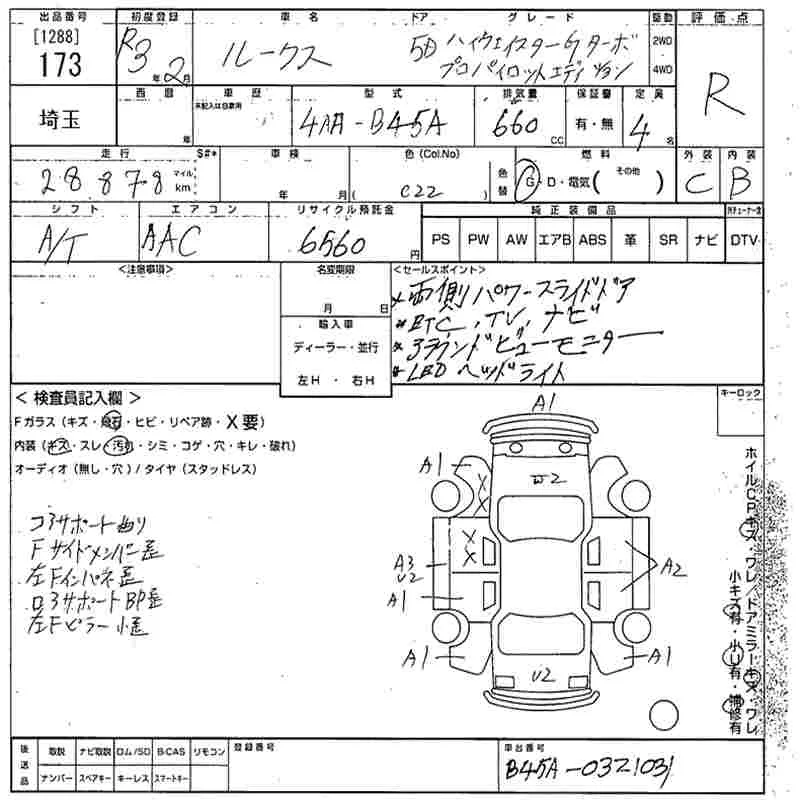 出品番号 初度登録 車名 ドア グレード 駆動 評価点
[1288] 173 R3年2月 ルークス 5D ハイウェイスターGターボ 2WD R
プロパイロットエディション 4WD
埼玉 西暦 年 車歴 未記入は自家用 型式 4AA-B45A 排気量 660cc 保証書 有・無 定員 4名
走行 S#* 車検 色(Col.No) 燃料 外装 内装
28878 マイル km 年 月 (C22) 色替 G・D・電気( その他 ) C B
シフト エアコン リサイクル預託金 純正装備品
A/T AAC 6560円 PS PW AW エアB ABS 革 SR ナビ DTV
<注意事項> 名変期限 <セールスポイント>
月 日
輸入車
ディーラー・並行
左H・右H
*両側パワースライドドア
*ETC、TV、ナビ
*アラウンドビューモニター
*LEDヘッドライト
<検査員記入欄> キーロック
Fガラス(キズ・飛石・ヒビ・リペア跡・X要)
内装(キズ・スレ・汚れ・シミ・コゲ・穴・キレ・破れ)
オーディオ(無し・穴)/タイヤ(スタッドレス)
コアサポート曲り
Fサイドメンバー歪
左Fインパネ歪
ロアサポートBP歪
左Fピラー小歪
A1
A1 X X U2
X X
A3 U2 A2
A1
A1 U2 A1
ホイルCPキズ・ワレ/ドアミラーキズ・ワレ
小キズ有・小U有・補修有
後送品 取説 ナビ取説 ロム/SD B-CAS リモコン 登録番号 車台番号
ナンバー スペアキー キーレス スマートキー B45A-0321031